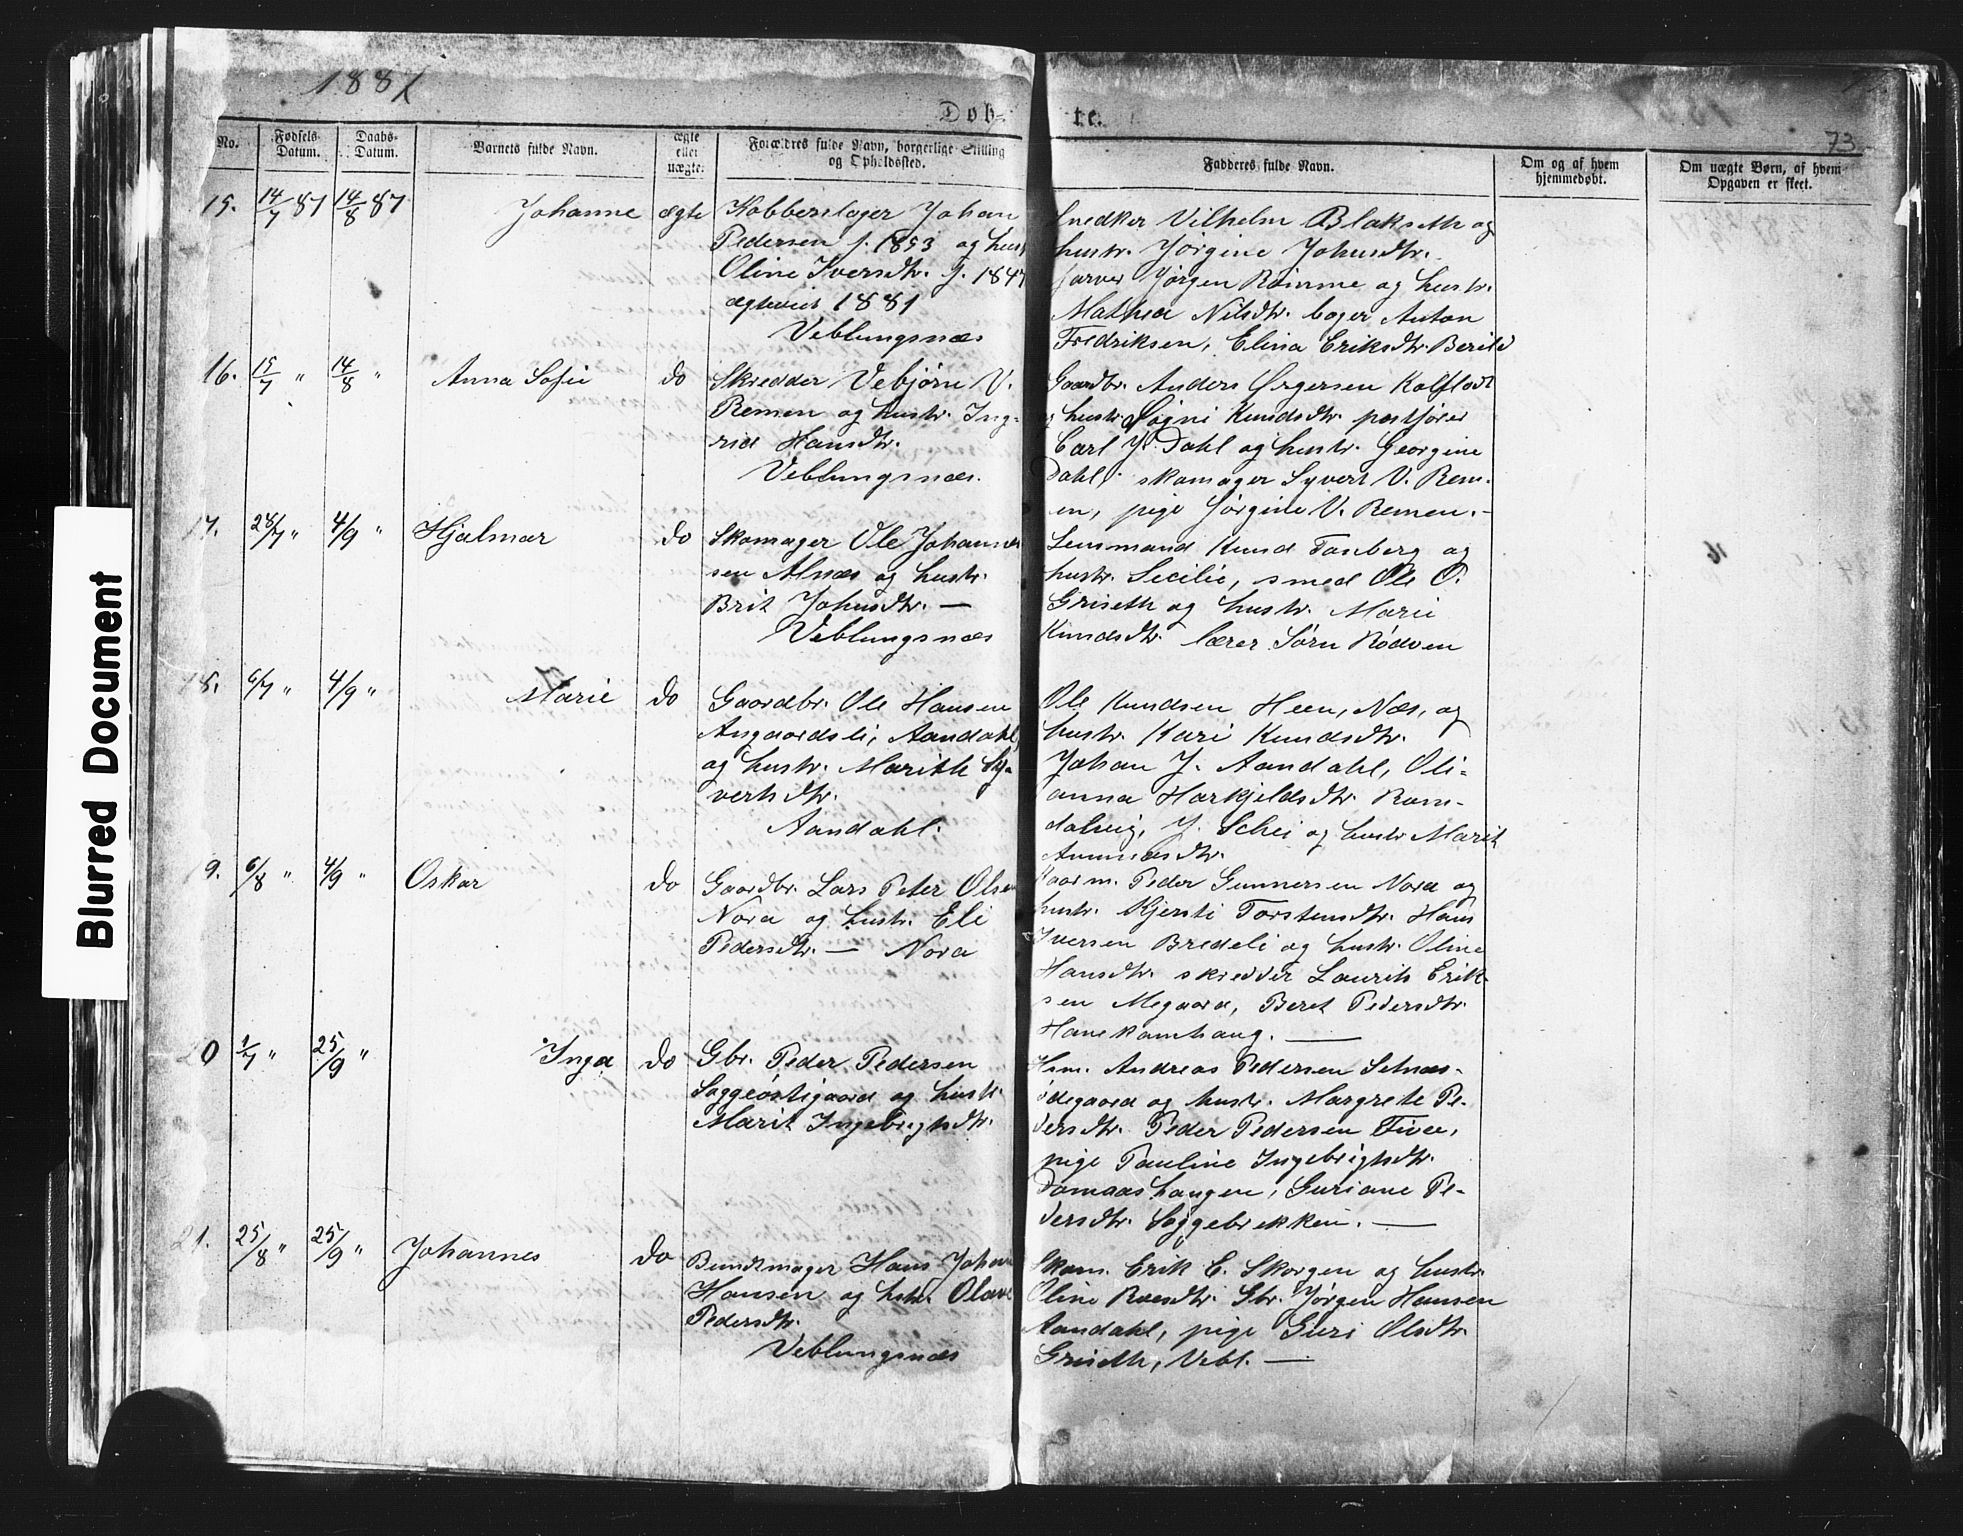 1887
Døb-
te.
73
No.
Fødsels-
Datum.
Daabs-
Datum.
Barnets fulde Navn.
ægte
eller
uægte.
Forældres fulde Navn, borgerlige Stilling
og Opholdssted.
Faddernes fulde Navn.
Om og af hvem
hjemmedøbt.
Om uægte Børn, af hvem
Opgaven er skeet.
15. 14/7 87 14/8 87 Johanne ægte
Kobberslager Johan
Pedersen f. 1853 og hustr
Oline Iversdtr. f. 1847
ægteviet 1881
Veblungsnæs
Snedker Vilhelm Blakseth og
hustr. Jørgine Johnsdtr.
farver Jørgen Rømme og hustr.
Mathea Nilsdtr. bager Anton
Fredriksen, Elina Eriksdtr. Berild
16. 15/7 " 14/8 " Anna Sofie do
Skredder Vebjørn V.
Remen og hustr. Ing-
rid Hansdtr.
Veblungsnæs.
Gaardbr. Anders Ørgersen Kolflodt
og hustr. Signi Knudsdtr. postfører
Carl J. Dahl og hustr. Georgine
Dahl, skomager Syvert V. Rem-
en, pige Jørgine V. Remen. -
17. 28/7 " 4/9 " Hjalmar do
Skomager Ole Johanne
sen Alnæs og hustr.
Brit Johnsdtr. —
Veblungsnæs
Lensmand Knud Taxberg og
hustr. Cecilie, smed Ole O.
Griseth og hustr. Marie
Knudsdtr. lærer Sørn Rødven
16
18. 6/7 " 4/9 " Marie do
Gaardbr. Ole Hansen
Aasgaardsli, Aandahl
og hustr. Marith Sy-
vertsdtr.
Aandahl.
Ole Knudsen Heen, Næs, og
hustr. Kari Knudsdtr.
Johan J. Aandahl, Oli-
anna Harkjeldsdtr. Rom-
dalseig, J. Schei og hustr. Marit
Amundsdtr.
19. 6/8 " 4/9 " Oskar do
Gaardbr. Lars Peter Olsen
Nora og hustr. Eli
Pedersdtr. — Nora
Kaarm. Peder Gunnersen Nora og
hustr. Kjersti Torstensdtr. Hans
Iversen Bredeli og hustr. Oline
Hansdtr. skredder Laurits Erik-
sen Mgaard, Beret Pedersdtr.
Hanekamhaug. —
20 1/7 " 25/9 " Inga do
Gbr. Peder Pedersen
Soggeøstigaard og hustr.
Marit Ingebrigtsdtr.
Hsm. Andreas Pedersen Setnæs-
ødegaard og hustr. Margrete Pe-
dersdtr. Peder Pedersen Fiva,
pige Pauline Ingebrigtsdtr.
Domaashaugen, Guriane Pe-
dersdtr. Soggebrekken. —
21. 25/8 " 25/9 " Johannes do
Bundtmager Hans Johan
Hansen og hstr. Olave
Pedersdtr.
Veblungsnæs
Skom. Erik E. Skorgen og hustr.
Oline Roesdtr. Gbr. Jørgen Hansen
Aandahl, pige Guri Olsdtr.
Griseth, Vebl. —
Blurred Document